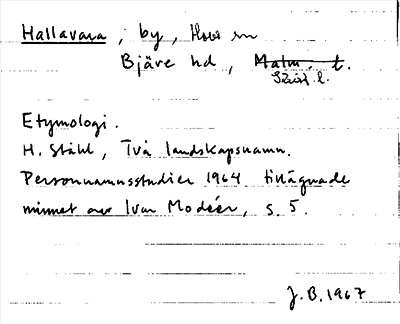 Hallavara, by, Hovs sn
Bjäre hd, Malm. l.
Krist. l.
Etymologi.
H. Ståhl, Två landskapsnamn.
Personnamnsstudier 1964 tillägnade
minnet av Ivar Modéer, s. 5.
J.B. 1967